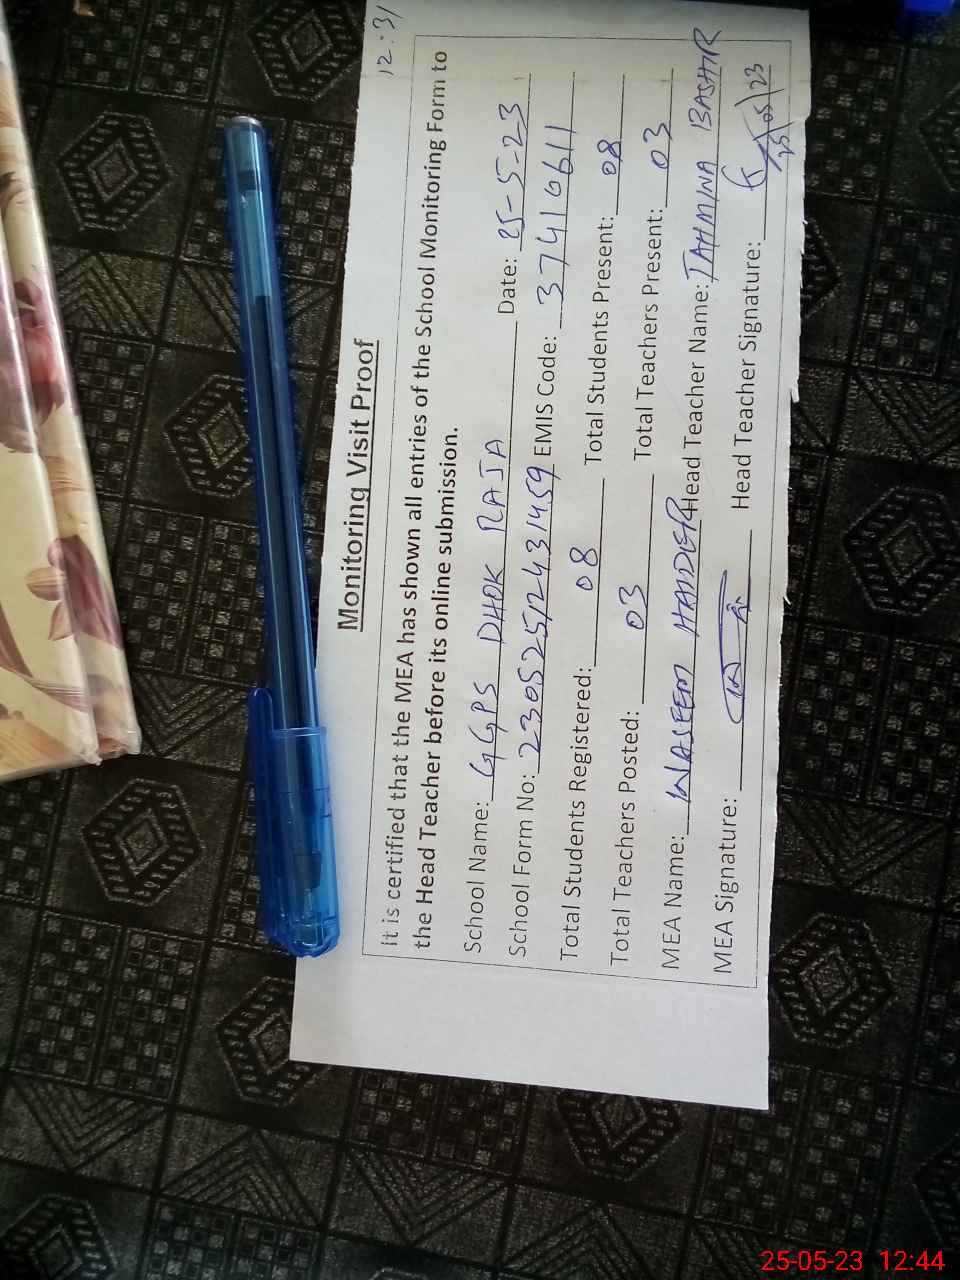 12:31
Monitoring Visit Proof
It is certified that the MEA has shown all entries of the School Monitoring Form to
the Head Teacher before its online submission.
School Name: GGPS DHOK RAJA Date: 25-5-23
School Form No: 23052512431459 EMIS Code: 37410611
Total Students Registered: 08 Total Students Present: 08
Total Teachers Posted: 03 Total Teachers Present: 03
MEA Name: WASEEM HAIDER Head Teacher Name: TAHMINA BASHIR
MEA Signature: Head Teacher Signature:
25/05/23
25-05-23 12:44